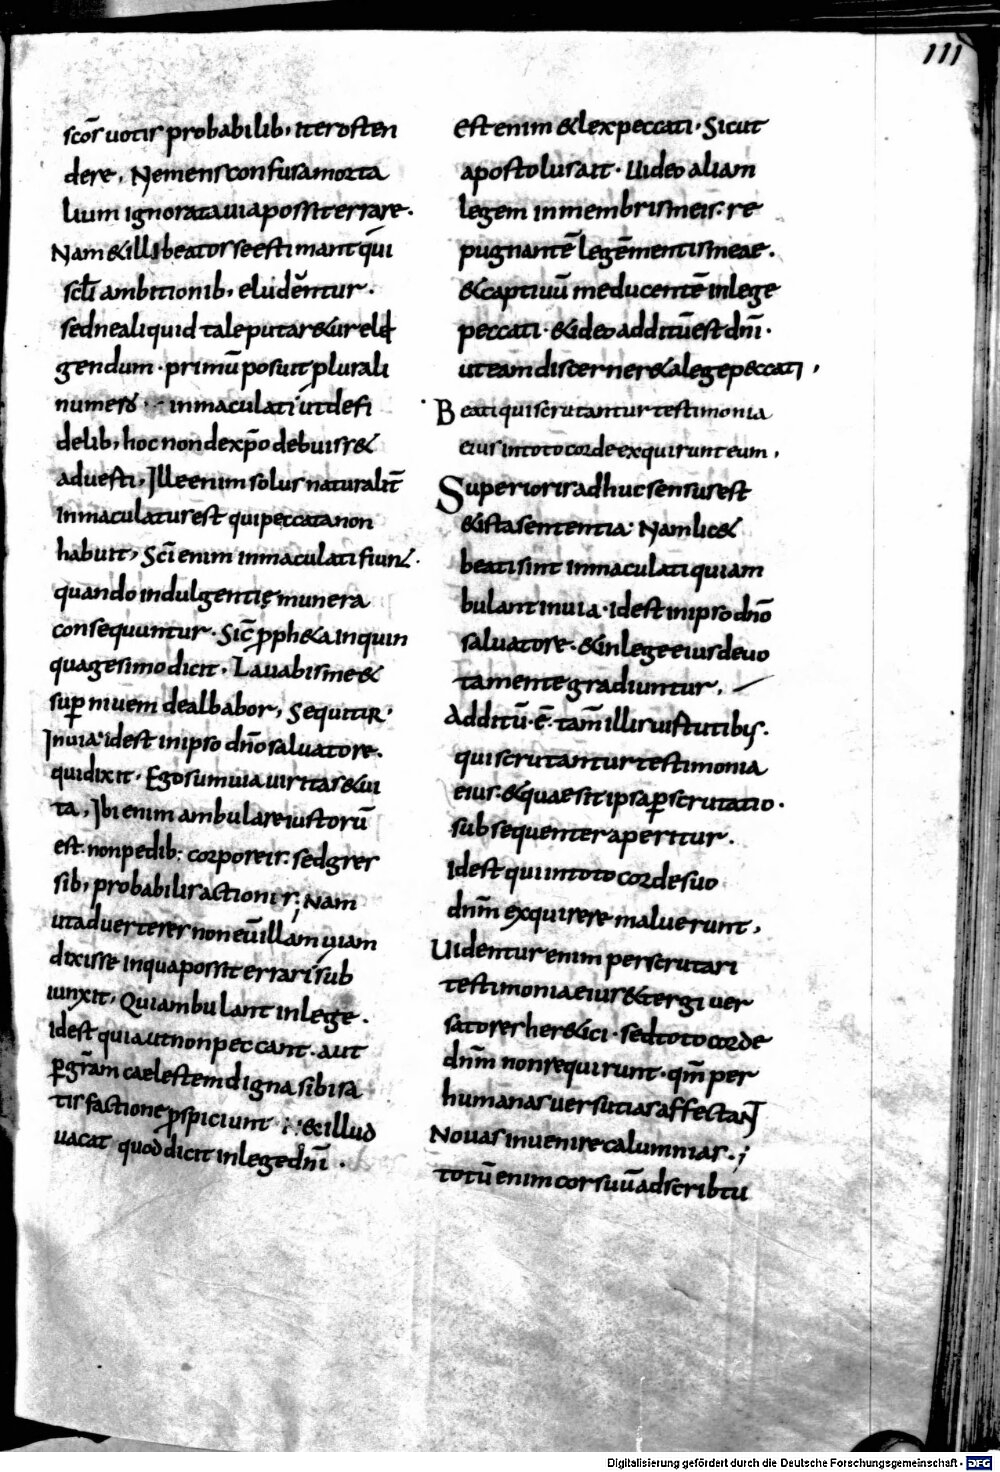 111
scōr uotis probabilib; iter osten
dere. Ne mens confusa morta
lium ignorata uia possit errare.
Nam & illi beatos se estimant qui
scłi ambitionib; eludēntur.
sed ne aliquid tale putar&ur ele
gendum. primū posuit plurali
numero inmaculati ut de fi
delib; hoc non de xp̄o debuiss&
aduesti. Ille enim solus naturalit̄
inmaculatus est qui peccata non
habuit. Sc̄i enim inmaculati fiunt.
quando indulgentię munera
consequuntur. Sic̄ proph&a in quin
quagesimo dicit. Lauabis me &
sup niuem dealbabor. Sequitur.
In uia. idest in ipso dn̄o saluatore.
qui dixit. Ego sum uia ueritas & ui
ta. Ibi enim ambulare iustorū
est. non pedib; corporeis. sed gres
sib; probabilis actionis; Nam
ut aduerteres non eū illam uiam
dixisse in qua possit errari sub
iunxit. Qui ambulant in lege.
Idest qui aut non peccant. aut
p gr̄am caelestem digna sibi sa
tisfactione pspiciunt; & illud
uacat quod dicit in lege dn̄i.
Est enim & lex peccati. Sicut
apostolus ait. Uideo aliam
legem in membris meis. re
pugnantē legē mentis meae.
& captiuū me ducentē in lege
peccati. & ideo additū est dn̄i.
ut eam discerner& a lege peccati,
Beati qui scrutantur testimonia
eius in toto corde exquirunt eum.
Superioris adhuc sensus est
& ista sententia. Nam lic&
beati sint inmaculati qui am
bulant in uia. idest in ipso dn̄o
saluatore. & in lege eius deuo
tamente gradiuntur.
Additū. ē. tam̄ illis uistutibus.
qui scrutantur testimonia
eius. & quae sit ipsa pscrutatio.
subsequenter aperitur.
Idest qui in toto corde suo
dn̄m exquirere maluerunt.
Uidentur enim perscrutari
testimonia eius & tergiuer
satores her&ici. sed toto corde
dn̄m non requirunt. qm̄ per
humanas uersutias affectant
Nouas inuenire calumnias.;
totū enim cor suū adscribtu
Digitalisierung gefördert durch die Deutsche Forschungsgemeinschaft - DFG